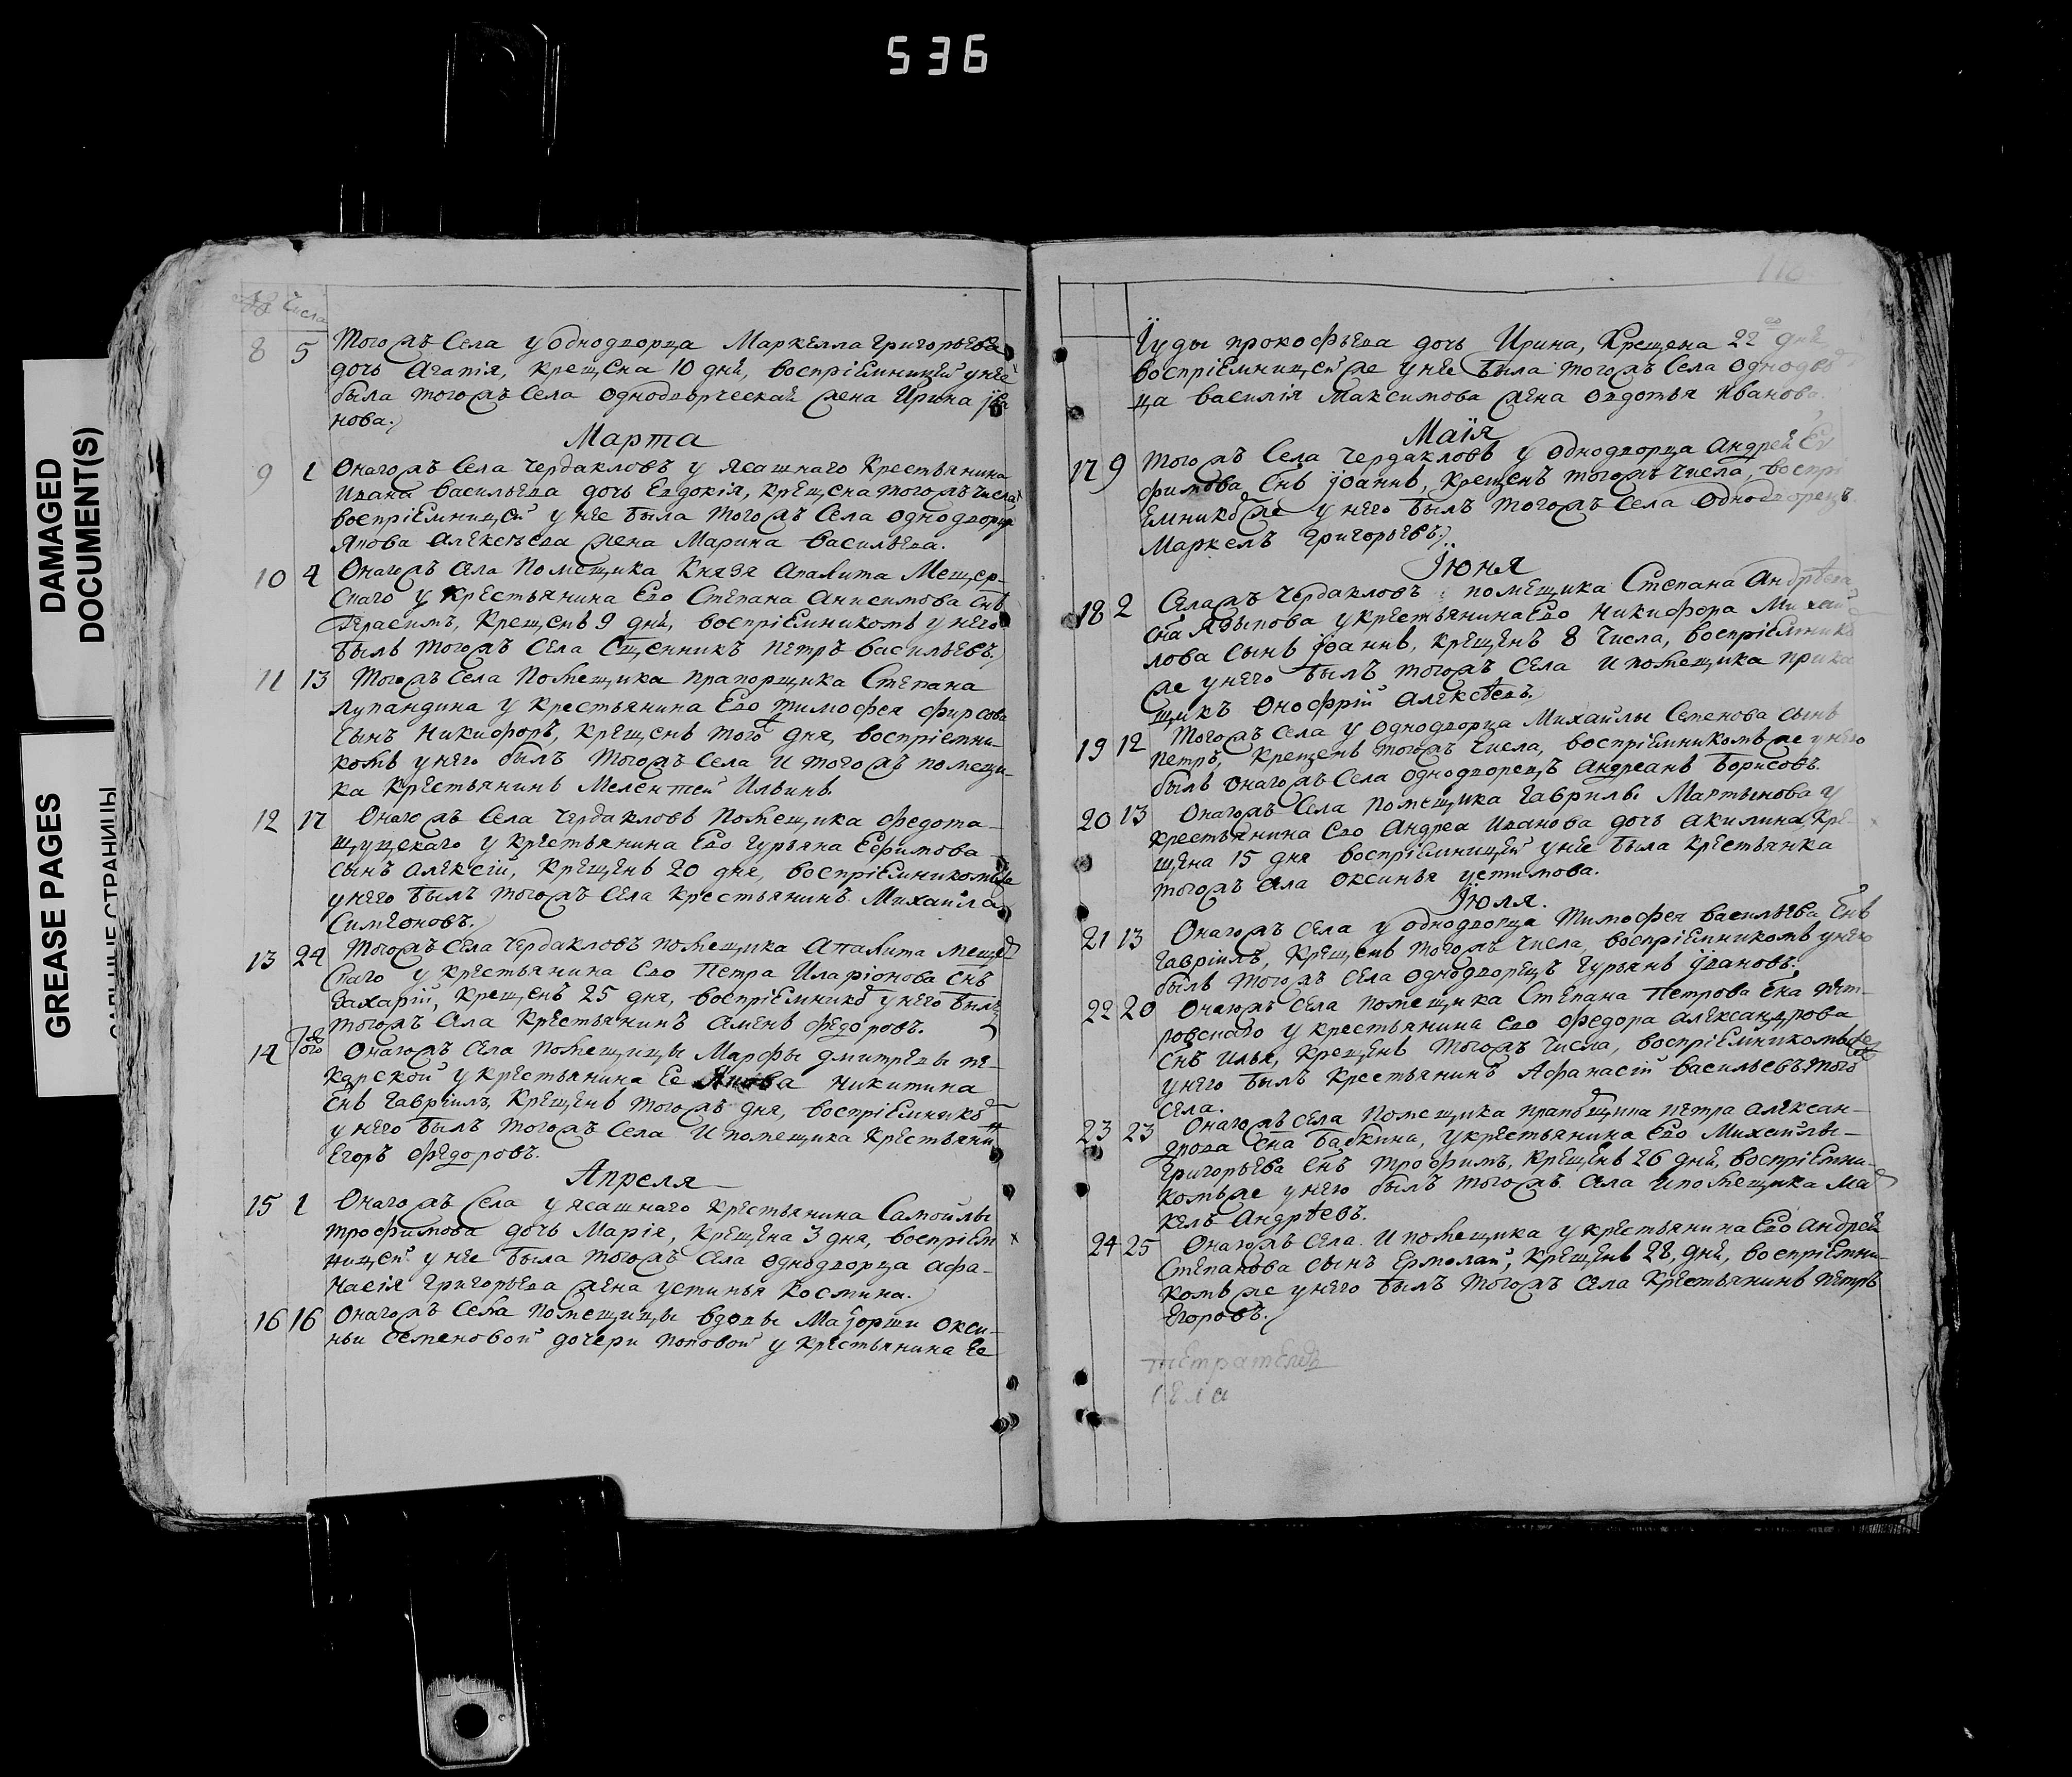 536
DAMAGED
DOCUMENT(S)
GREASE PAGES
№ Числа
8 5 Тогожъ Села у однодворца Маркелла Григорьева
дочь Агапія, крещена 10 дня, воспріемницей у нее
была тогожъ Села однодворческая жена Ирина Їва
нова.
Марта
9 1 Онагожъ Села Чердакловъ у Ясашнаго Крестьянина
Ивана Васильева дочь Евдокія, крещена тогожъ числа
воспріемницей у нее была тогожъ Села однодворца
Якова Алексѣева жена Марина Васильева.
10 4 Онагожъ села Помещика Князя Апалита Мещер-
скаго у крестьянина Ево Степана Анисимова снъ
Герасимъ, Крещенъ 9 дня, воспріемникомъ у него
былъ тогожъ Села Сщенникъ Петръ Васильевъ.
11 13 Тогожъ Села Помещика прапорщика Степана
Лупандина у крестьянина Ево Тимофея Фирсова
сынъ Никифоръ, крещенъ того дня, воспріемни-
комъ у него былъ тогожъ Села и тогожъ помещи-
ка Крестьянинъ Мелентей Ильинъ.
12 17 Онагожъ Села Чердакловъ Помещика Федота
у крестьянина Ево Гурьяна Ефимова
сынъ Алексій, Крещенъ 20 дня, воспріемникомъже
у него былъ тогожъ села крестьянинъ Михайла
Симеоновъ.
13 24 Тогожъ Села Чердакловъ помещика Апалита Мещер
скаго у крестьянина Ево Петра Иларіонова снъ
Захарій, крещенъ 25 дня, воспріемнико у него былъ
тогожъ села крестьянинъ Федоровъ.
14 Онагожъ села помещицы Марфы Дмитревы пе-
карской у крестьянина Ее Якова Никитина
снъ Гавріилъ, крещенъ тогожъ дня, воспріемнико
у него былъ тогожъ Села и помещика крестьяни
Егоръ Федоровъ.
Апреля
15 1 Онагожъ Села у ясашнаго крестьянина Самойлы
Трофимова дочь Марія, крещена 3 дня, воспріем
ницей у нее была тогожъ села однодворца Афа-
насія Григорьева жена Устинья Космина.
16 16 Онагожъ Села помещицы вдовы Маїорши Окси-
ньи Семеновой дочери Поповой у крестьянина Ее
Їуды Прокофьева дочь Ирина, Крещена 22го дня
воспріемницейже у нее была тогожъ Села однодвор
ца Василія Максимова жена Овдотья Иванова.
Маїя
17 9 Тогожъ Села Чердакловъ у однодворца Андрей
фимова снъ Їоаннъ, крещенъ тогожъ числа, воспрі
емникоже у него былъ тогожъ Села однодворецъ
Маркелъ Григорьевъ.
Їюня
18 2 Селажъ Чердакловъ помещика Степана Андрѣева
сна Языкова у крестьянина Ево Никифора Михаи
лова сынъ Їоаннъ, крещенъ 8 числа, воспріемнико
же у него былъ тогожъ села и помещика прика
щикъ Онофрій Алексѣевъ.
19 12 Тогожъ Села у однодворца Михайлы Семенова сынъ
Петръ, крещенъ тогожъ числа, воспріемникомъже у него
былъ онагожъ Села однодворецъ Андреанъ Борисовъ.
20 13 Онагожъ Села помещика Гаврилы Мартынова у
крестьянина Ево Андреа Иванова дочь Акилина, кре-
щена 15 дня воспріемницей у нее была крестьянка
тогожъ села Оксинья Устимова.
Їюля.
21 13 Онагожъ Села у однодворца Тимофея Васильева снъ
Гавріилъ, крещенъ тогожъ числа, воспріемникомъ у него
былъ тогожъ села однодворецъ Гурьянъ Ївановъ.
22 20 Онагожъ Села помещика Степана Петрова сна Пет-
ровскаго у крестьянина Ево Федора Александрова
снъ Илья, крещенъ тогожъ числа, воспріемникомъже
у него былъ крестьянинъ Афанасій Васильевъ того
села.
23 23 Онагожъ села Помещика прапощика Петра Алексан-
дрова сна Бабкина, у крестьянина Ево Михайлы
Григорьева снъ Трофимъ, крещенъ 26 дня, воспріемни-
комъже у него былъ тогожъ села и помещика Ма
келъ Андрѣевъ.
24 25 Онагожъ села и помещика у крестьянина Ево Андрея
Степанова сынъ Ермолай, крещенъ 28, дня, воспріемни-
комъже у него былъ тогожъ села крестьянинъ Петръ
Егоровъ.
села